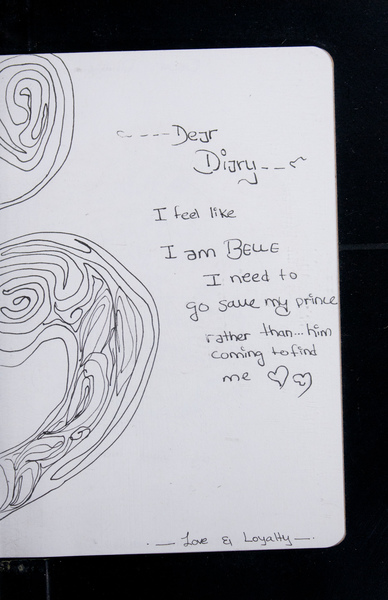 Dear
Diary
I feel like
I am BELLE
I need to
go save my prince
rather than... him
coming to find
me
Love & Loyalty